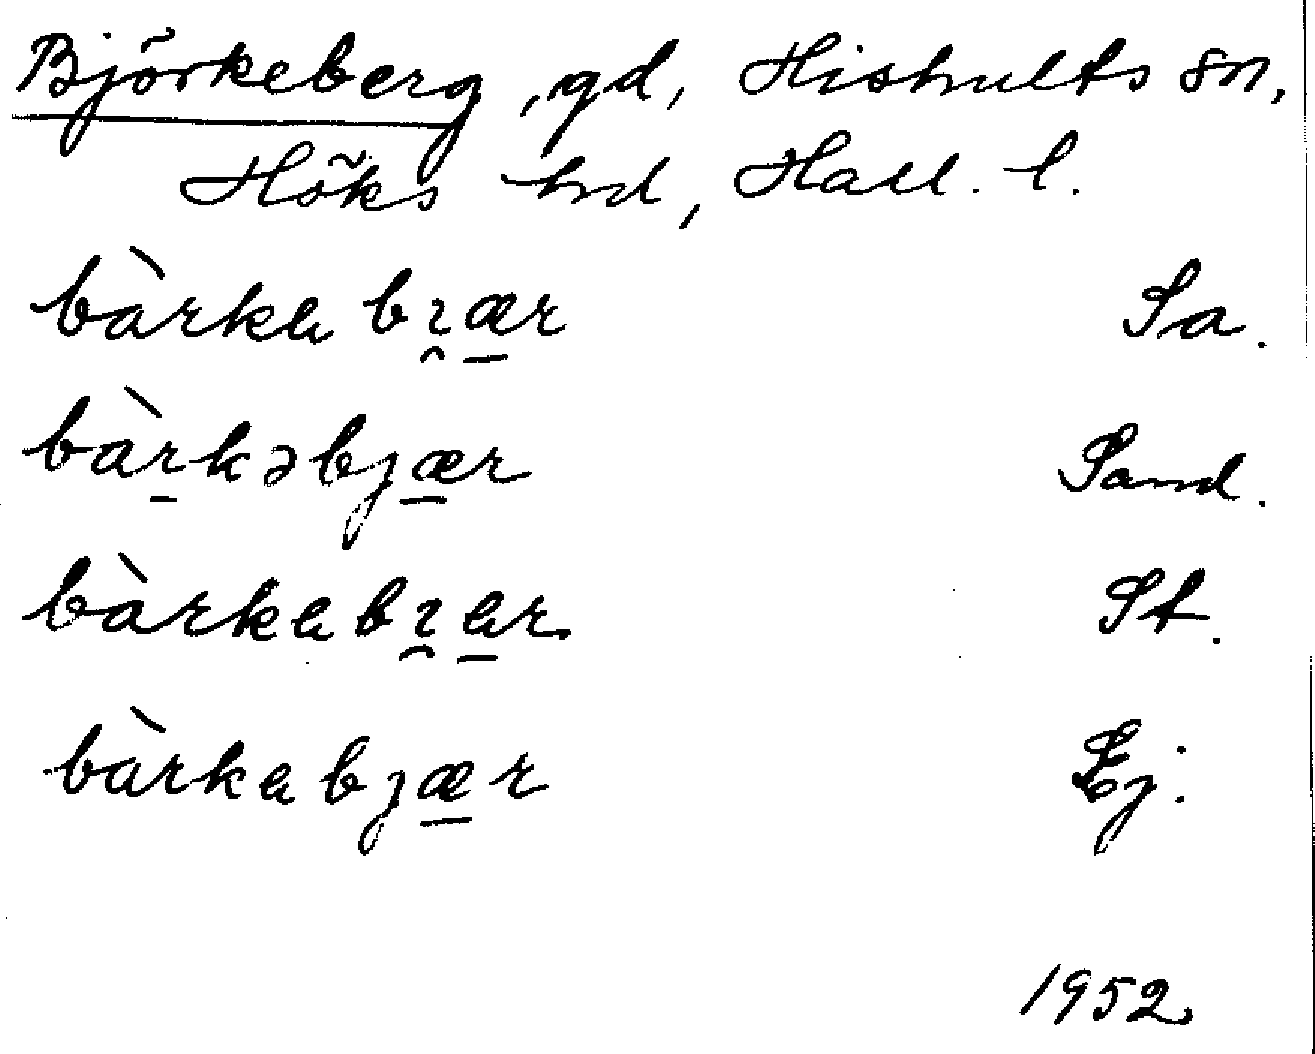 Björkeberg, gd, Hishults sn,
Höks hd, Hall. l.
bàrkabı̯æ̠r Sa.
bàr̠kəbjæ̠r Sand.
bàrkabı̯a̠r St.
bàrkabjæ̠r Ej.
1952